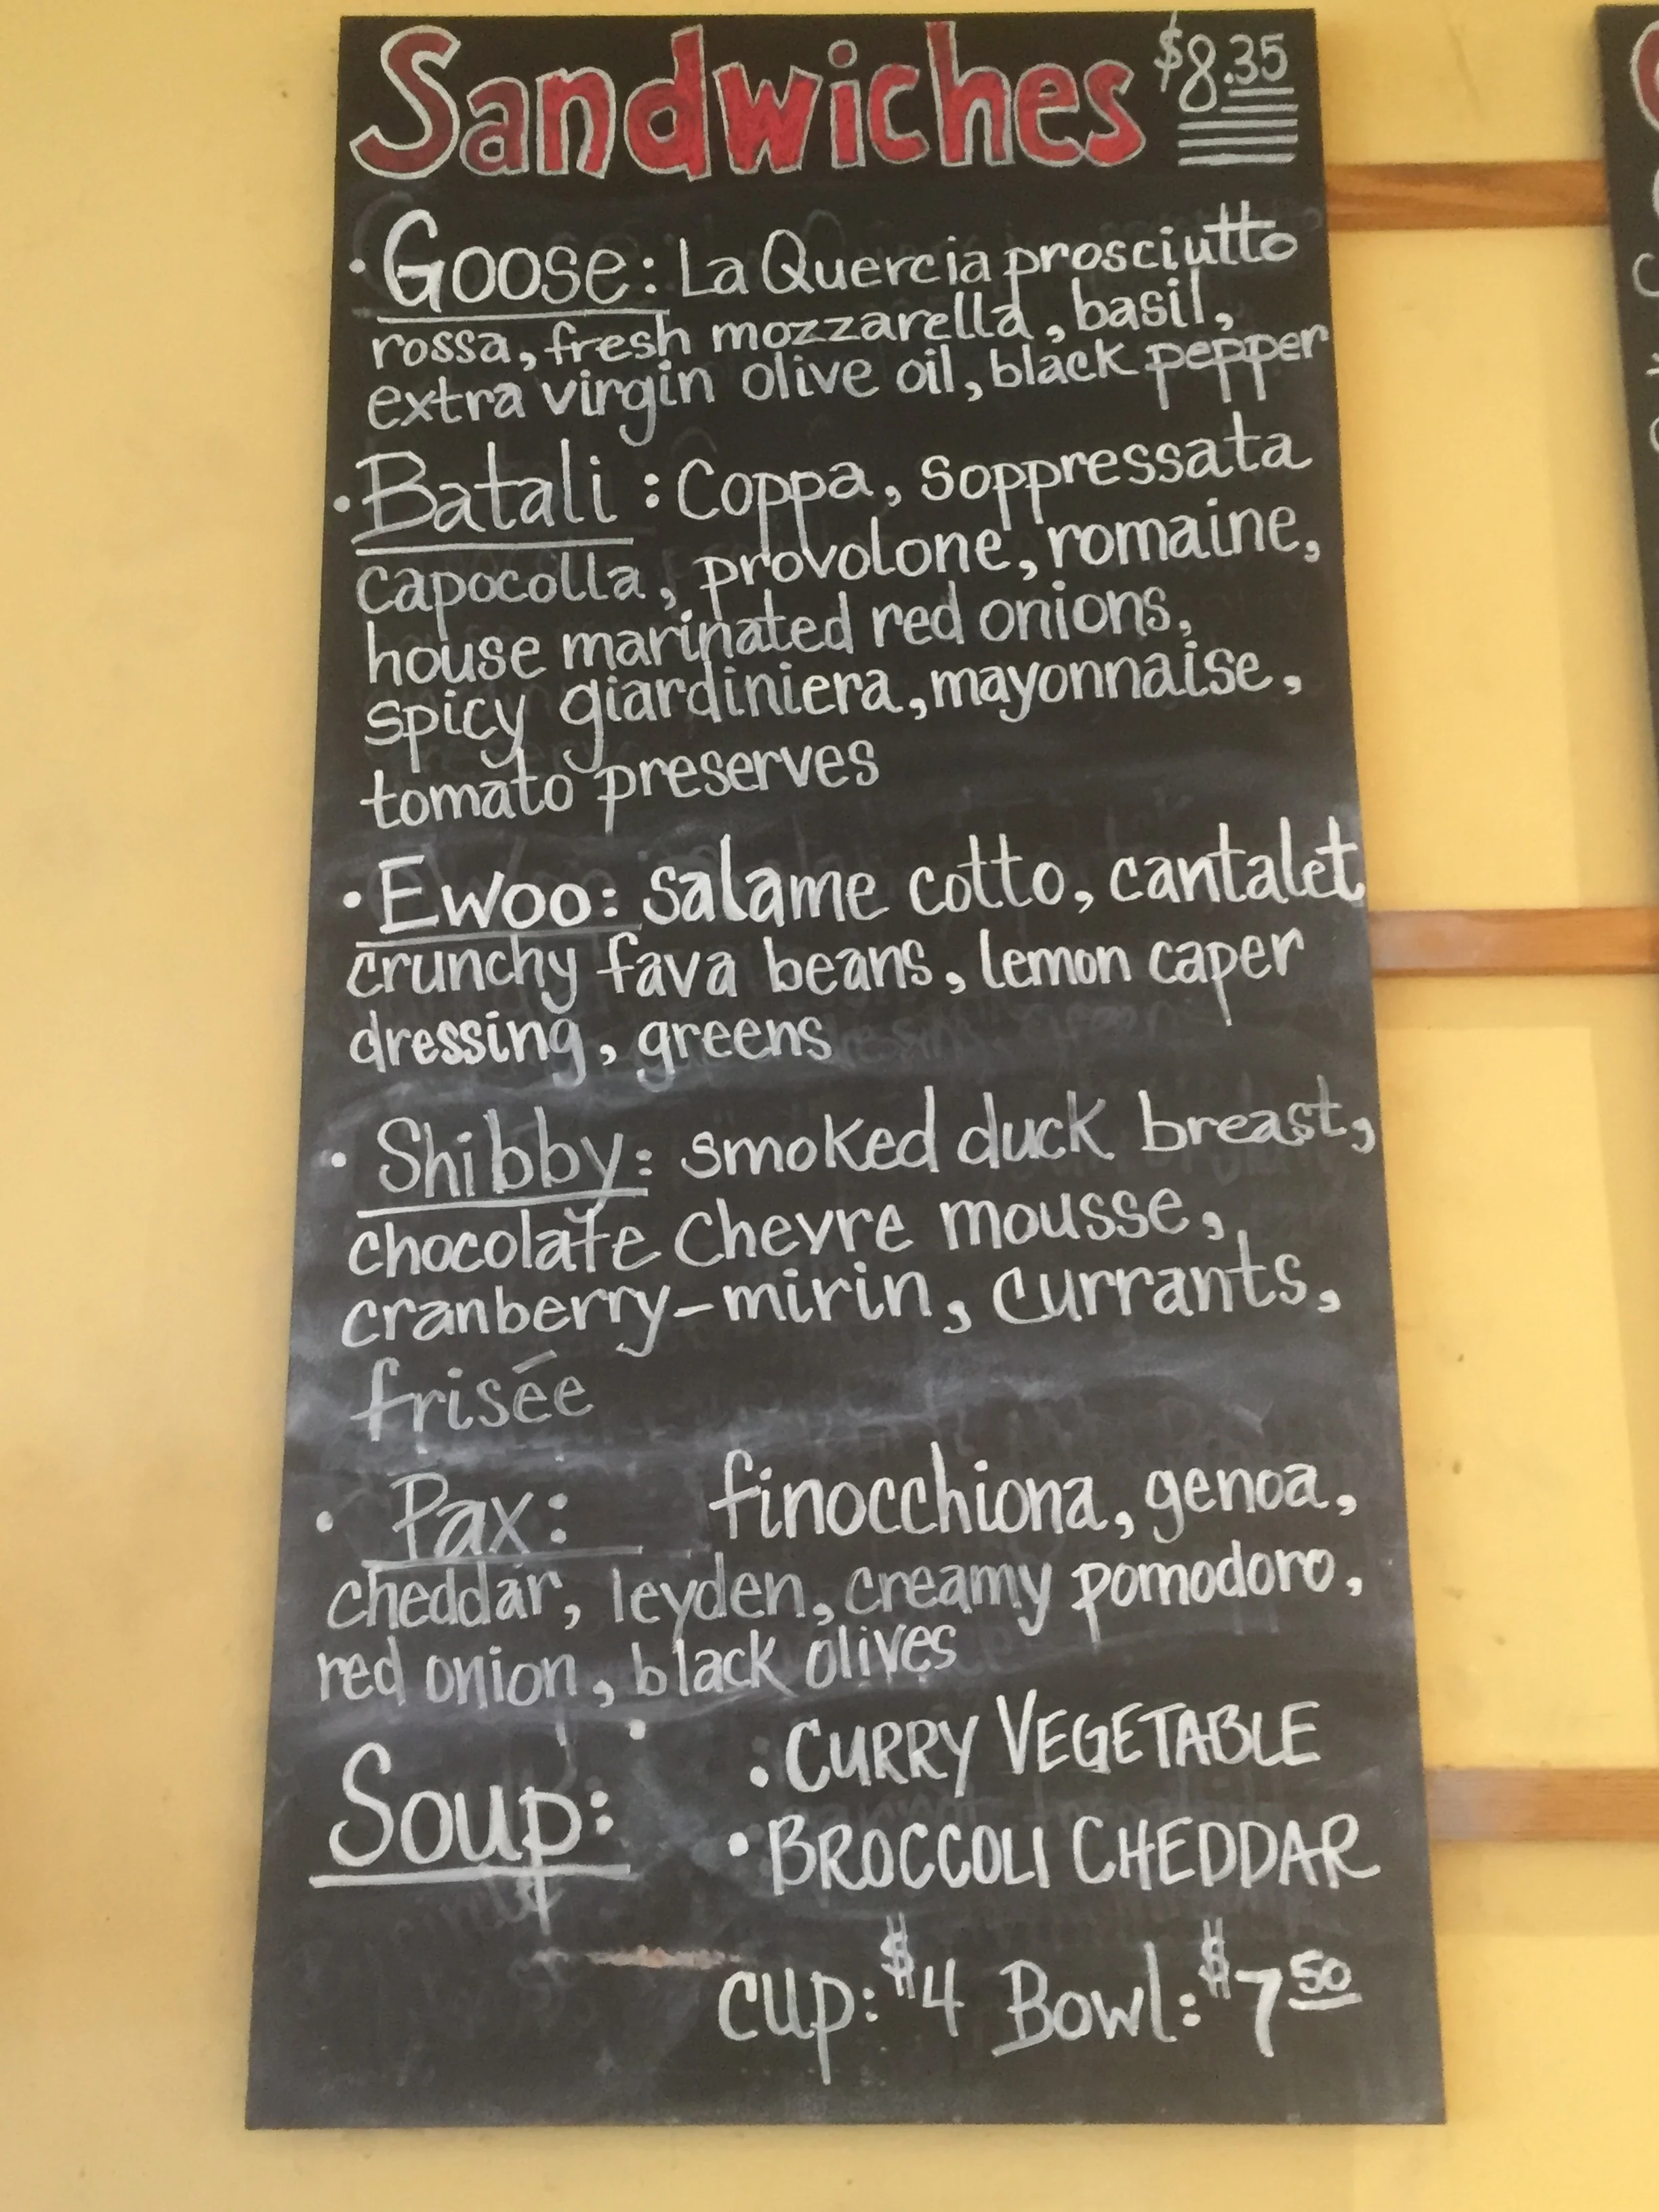 Sandwiches $8.35
• Goose: La Quercia prosciutto
rossa, fresh mozzarella, basil,
extra virgin olive oil, black pepper
• Batali: Coppa, Soppressata
capocolla, provolone, romaine,
house marinated red onions,
spicy giardiniera, mayonnaise,
tomato preserves
• Ewoo: salame cotto, cantalet
crunchy fava beans, lemon caper
dressing, greens
• Shibby: smoked duck breast,
chocolate chevre mousse,
cranberry-mirin, currants,
frisée
• Pax: finocchiona, genoa,
cheddar, leyden, creamy pomodoro,
red onion, black olives
Soup:
• CURRY VEGETABLE
• BROCCOLI CHEDDAR
cup: $4 Bowl: $7 50